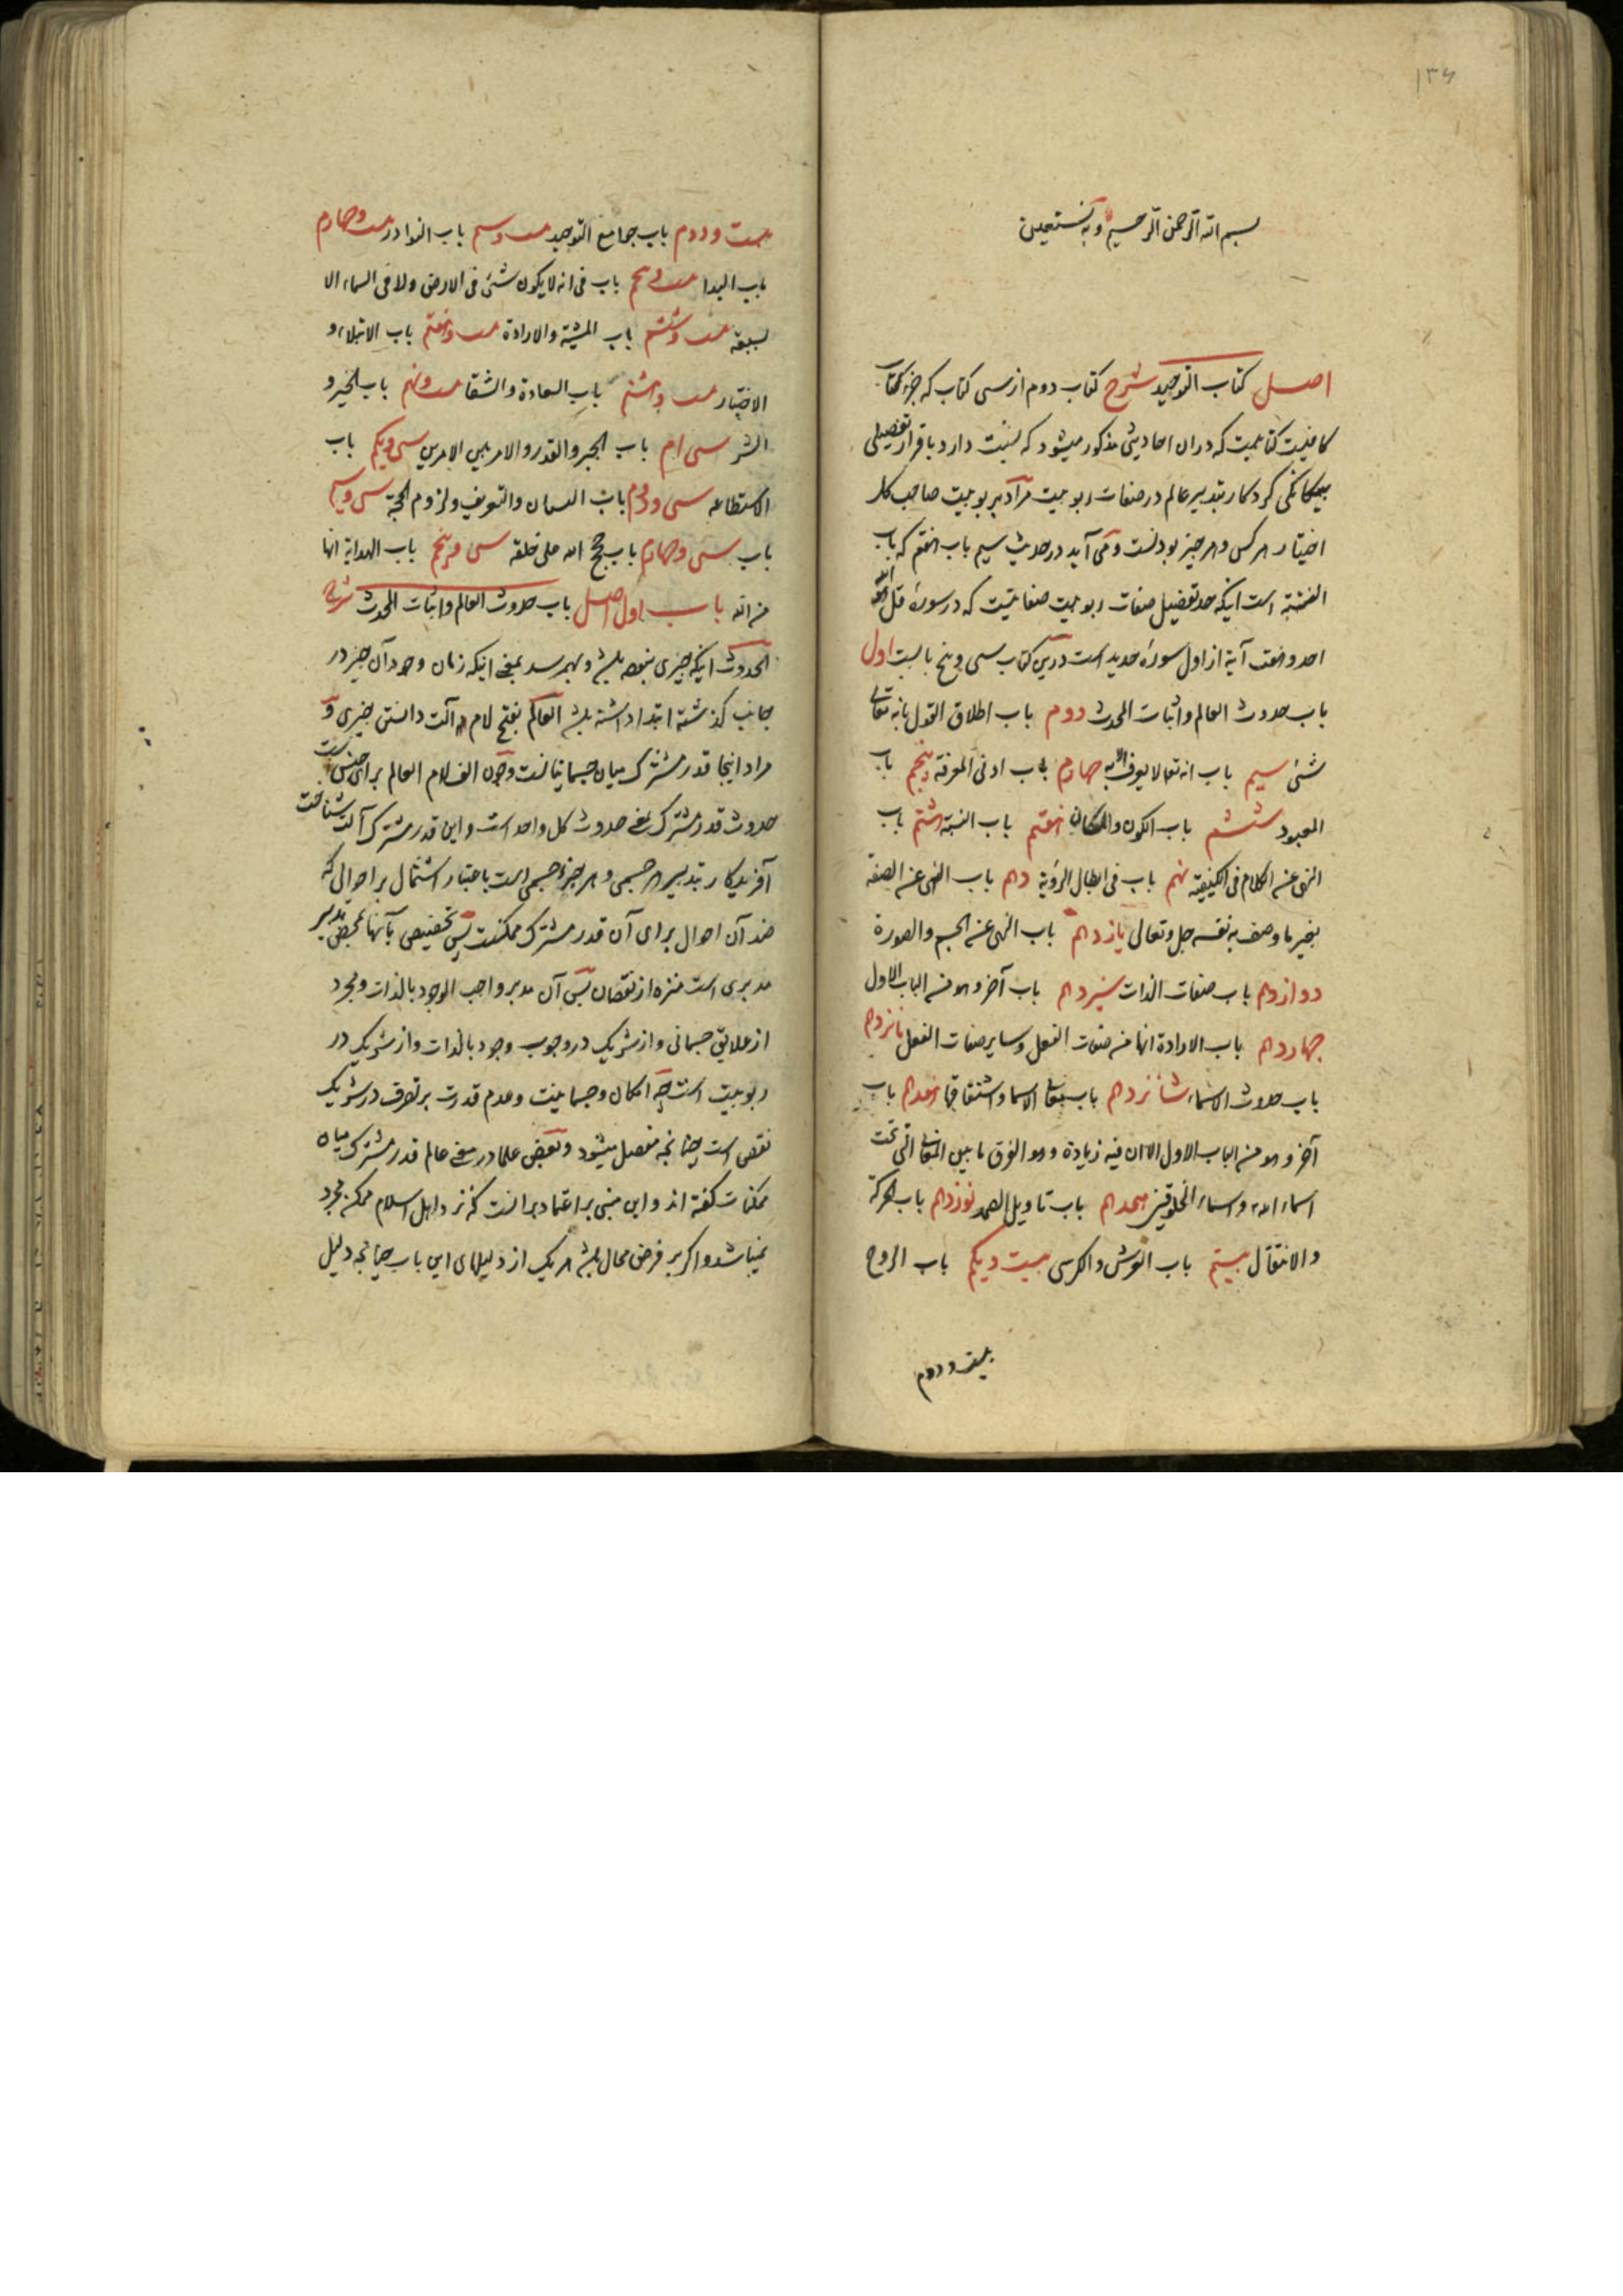 ۱۳۶
بسم الله الرحمن الرحیم و به نستعین
اصل کتاب التوحید شرح کتاب دوم از سی کتاب که جزو کتاب
کافیست کتابیست که در آن احادیثی مذکور میشود که نسبت دارد باقرار تفصیلی
بیگانگی کردکار بتدبیر عالم در صفات ربوبیت مراد بربوبیت صاحب کل
اختیار هر کس و هر چیز بودنست و می آید در حدیث سیم باب هفتم که باب
النسبة است اینکه حد تفضیل صفات ربوبیت صفاتیست که در سورهٔ قل هو الله
احد و هفت آیة از اول سورهٔ حدید است درین کتاب سی و پنج بابست اول
باب حدوث العالم و اثبات المحدث دوم باب اطلاق القول بانه تعالی
شئ سیم باب انه تعالا لا یعرف الا به چهارم باب ادنی المعرفة پنجم باب
المعبود ششم باب الکون و المکان هفتم باب النسبة هشتم باب
النهی عن الکلام فی الکیفیة نهم باب فی ابطال الرؤیة دهم باب النهی عن الصفة
بغیر ما وصف به نفسه جل و تعالی یازدهم باب النهی عن الجسم والصورة
دوازدهم باب صفات الذات سیزدهم باب آخر و هو من الباب الاول
چهاردهم باب الارادة انها من صفات الفعل و سایر صفات الفعل پانزدهم
باب حدوث الاسماء شانزدهم باب معانی الاسماء و اشتقاقها هفدهم باب
آخر و هو من الباب الاول الا ان فیه زیادة و هو الفرق ما بین المعانی التی تحت
اسماء الله و اسماء المخلوقین هجدهم باب تاویل الصمد نوزدهم باب الحرکة
والانتقال بیستم باب العرش والکرسی بیست و یکم باب الروح
بیست و دوم
بیست و دوم باب جوامع التوحید بیست و سیم باب النوادر بیست و چهارم
باب البدا بیست و پنجم باب فی انه لا یکون شئ فی الارض ولا فی السماء الا
بسبعة بیست و ششم باب المشیة والارادة بیست و هفتم باب الابتلاء و
الاختبار بیست و هشتم باب السعادة والشقا بیست و نهم باب الخیر و
الشر سی ام باب الجبر والقدر والامر بین الامرین سی و یکم باب
الاستطاعه سی و دوم باب البیان والتعریف ولزوم الحجة سی و سیم
باب سی و چهارم باب حجج الله علی خلقه سی و پنجم باب الهدایة انها
من الله باب اول اصل باب حدوث العالم و اثبات المحدث شرح
الحدوث اینکه چیزی نبوده باشد و بهم رسد بمعنی اینکه زمان وجود آن چیز در
جانب گذشته ابتدا داشته باشد العالم بفتح لام آلت دانستن چیزی و
مراد اینجا قدر مشترک میان جسمانیاتست و چون الف لام العالم برای جنس است
حدوث قدر مشترک بمعنی حدوث کل واحد است و این قدر مشترک آلت شناخت
آفریدکار بتدبیر هر جسمی و هر جزو جسمی است باعتبار اشتمال بر احوالی که
ضد آن احوال برای آن قدر مشترک ممکنست پس تخصیص بآنها بمحض تدبیر
مدبری است منزه از نقصان پس آن مدبر واجب الوجود بالذات و مجرد
از علایق جسمانی و از شریک در وجوب وجود بالذات و از شریک در
ربوبیت است چه امکان و جسمانیت و عدم قدرت بر تصرف در شریک
نقص است چنانچه مفصل میشود و بعضی علما در معنی عالم قدر مشترک میان
ممکنات گفته اند و این مبنی بر اعتماد برانست که نزد اهل اسلام ممکن مجرد
نمیباشد و اکر بر فرض محال باشد هر یک از دلیلهای این باب چنانچه دلیل